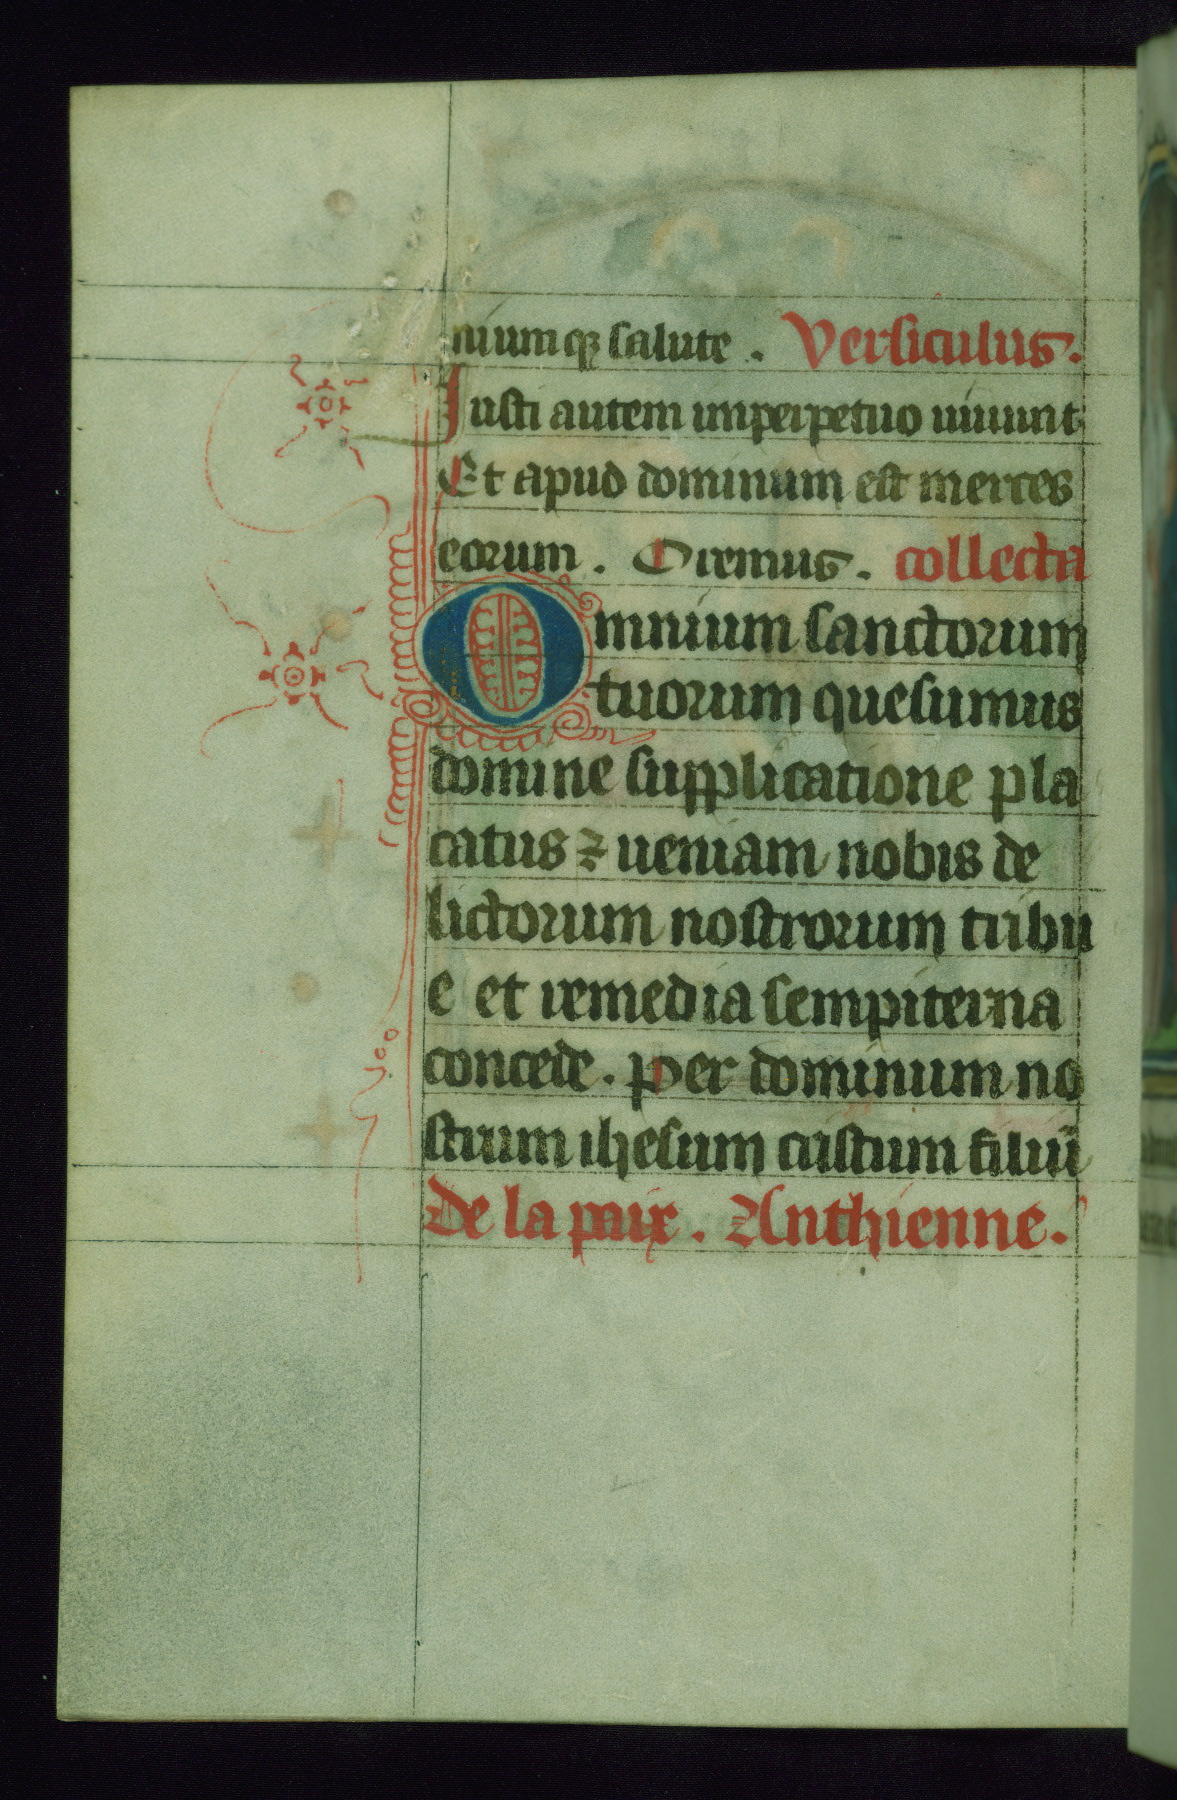 niumqꝫ salute. Versiculus.
Justi autem imperpetuo uiuunt
Et apud dominum est merces
eorum. Oremus. collecta
Omnium sanctorum
tuorum quesumus
domine supplicatione pla
catus ⁊ ueniam nobis de
lictorum nostrorum tribu
e et remedia sempiterna
concede. per dominum no
strum ihesum cristum filiū
De la paix. Anthienne.